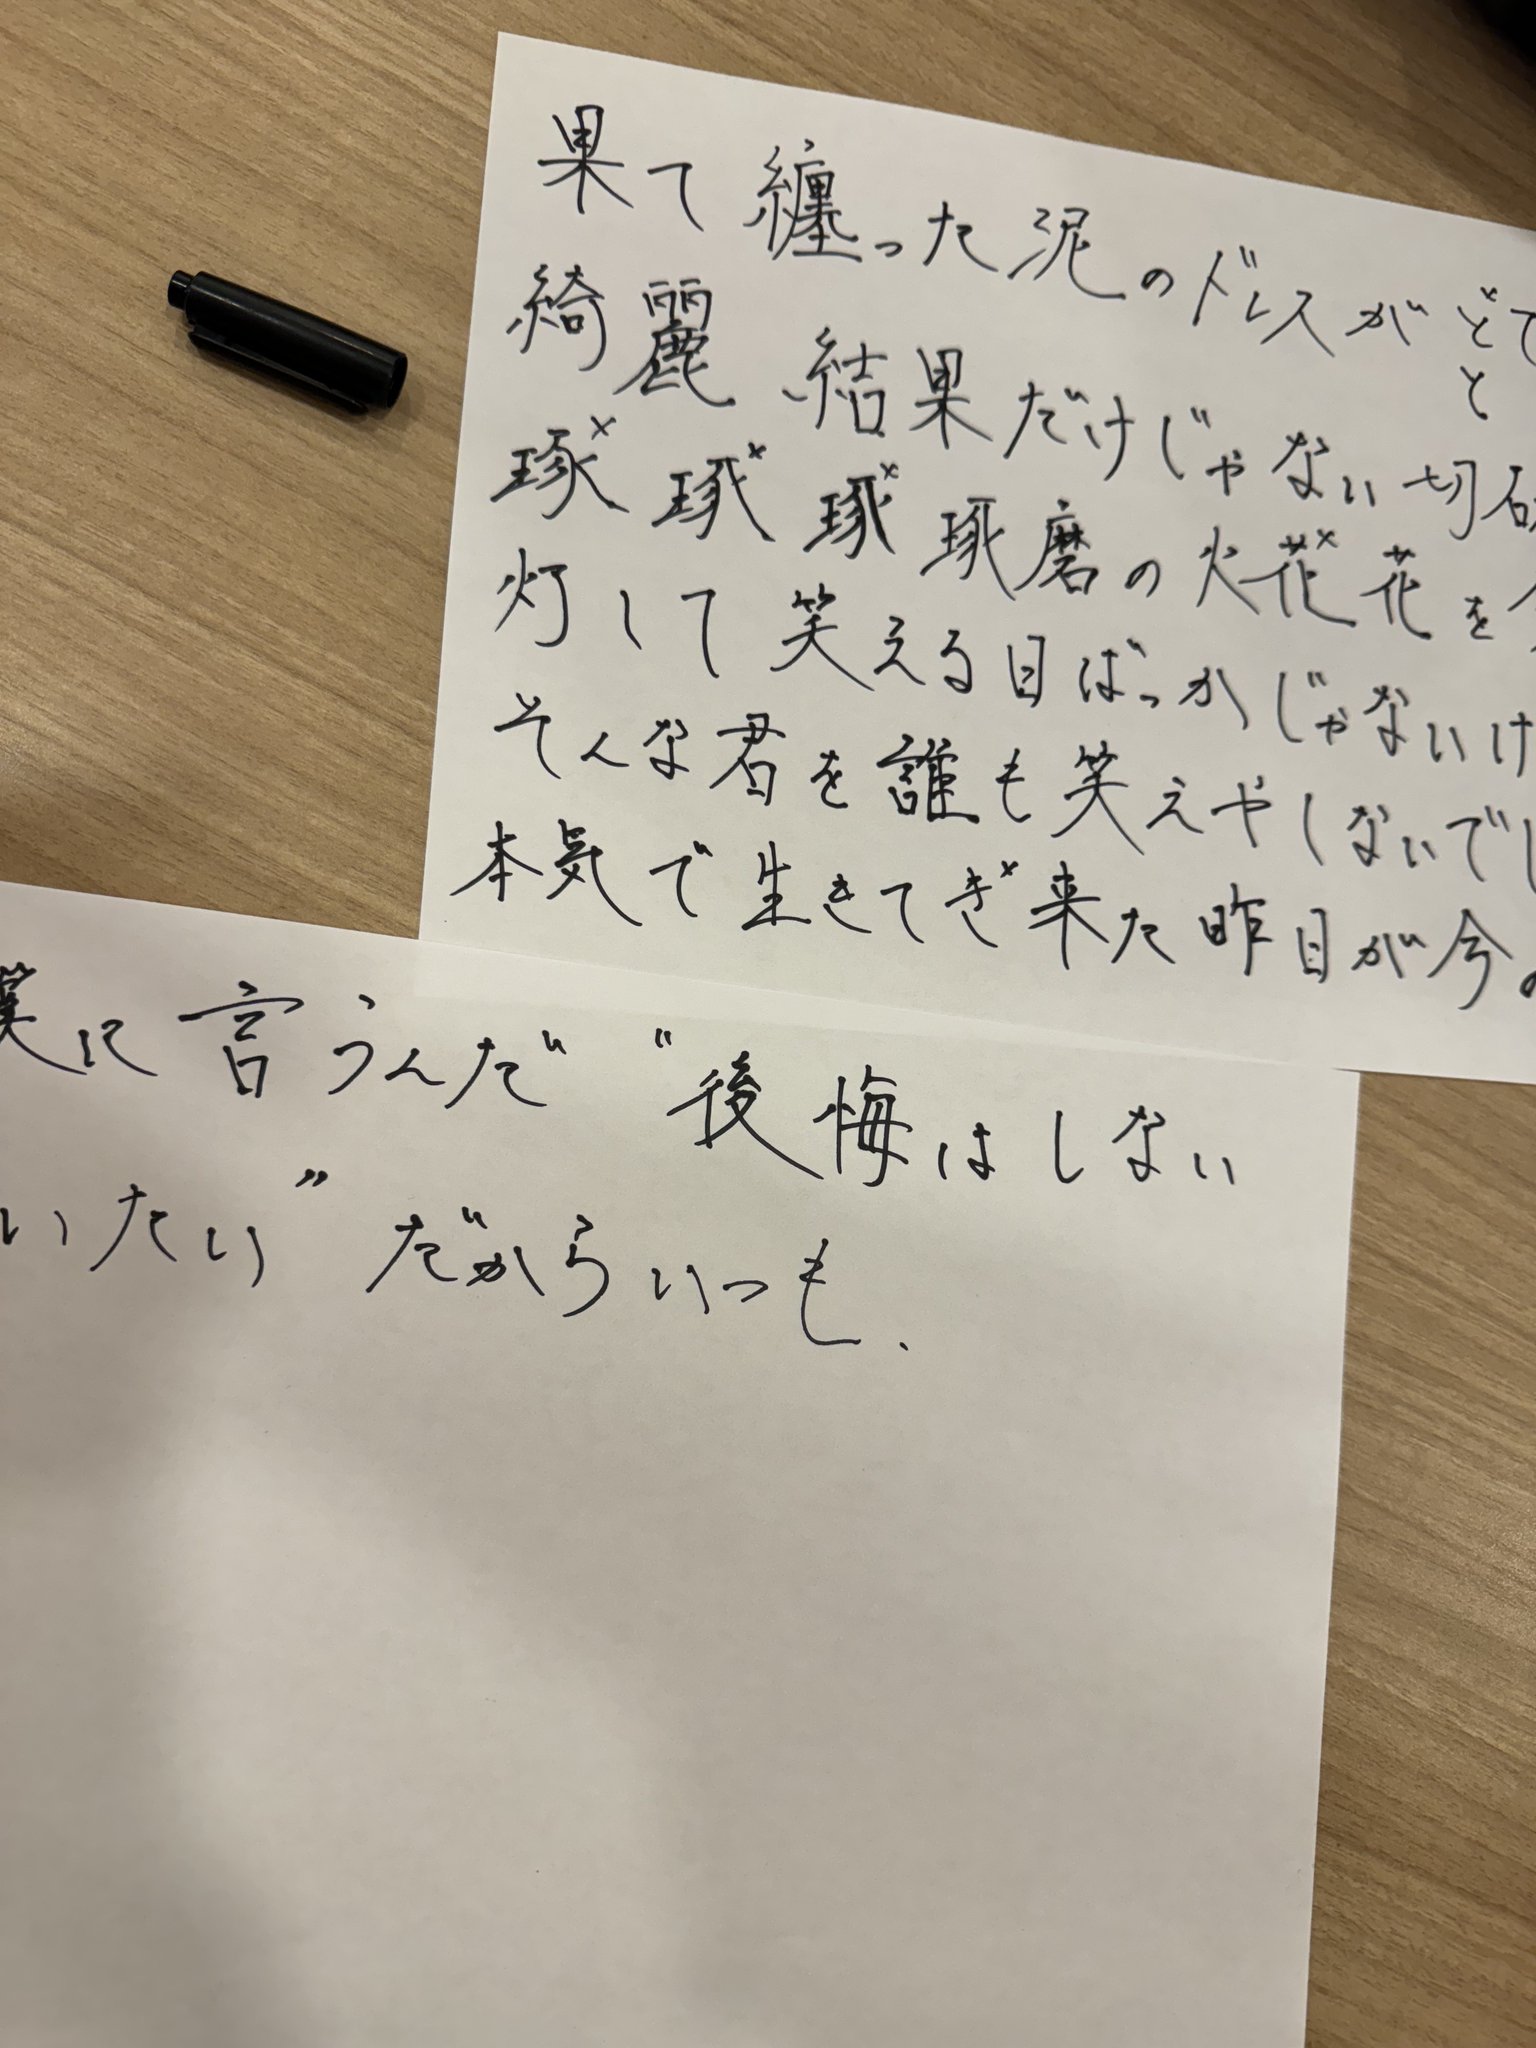 果て纏った泥のドレスがどて
と
綺麗 結果だけじゃない切磋
琢 琢 琢 琢磨の火花花を
灯して笑える日ばっかじゃないけ
そんな君を誰も笑えやしないでし
本気で生きてき来た昨日が今
僕に言うんだ"後悔はしない
いたい"だからいつも、